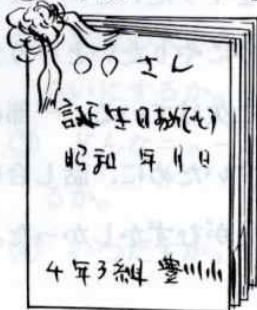 ○○さん
誕生日おめでとう
昭和 年 月 日
4年3組 豊川小